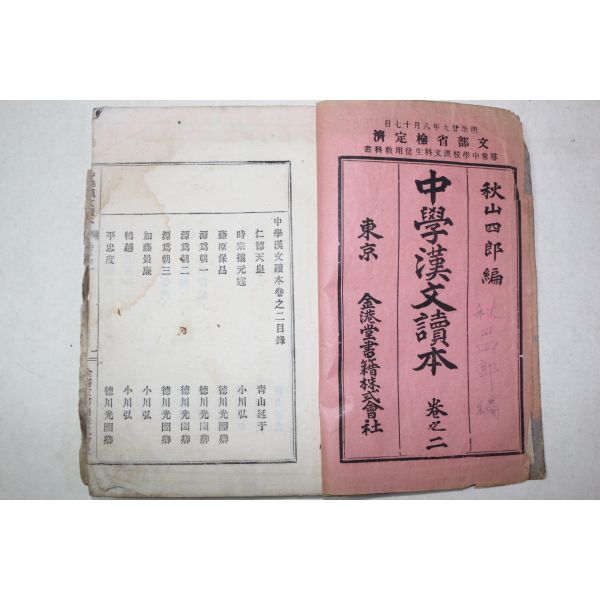 明治廿九年八月十七日
文部省檢定濟
尋常中學校漢文科生徒用敎科書
秋山四郎編
秋山四郎編
中學漢文讀本 卷之二
東京 金港堂書籍株式會社
中學漢文讀本卷之二目錄
仁德天皇 青山延于
時宗攘元寇 小川弘
藤原保昌 德川光圀卿
源爲朝一 德川光圀卿
源爲朝二 德川光圀卿
源爲朝三 德川光圀卿
加藤景廉 小川弘
鵯越 小川弘
平忠度 德川光圀卿